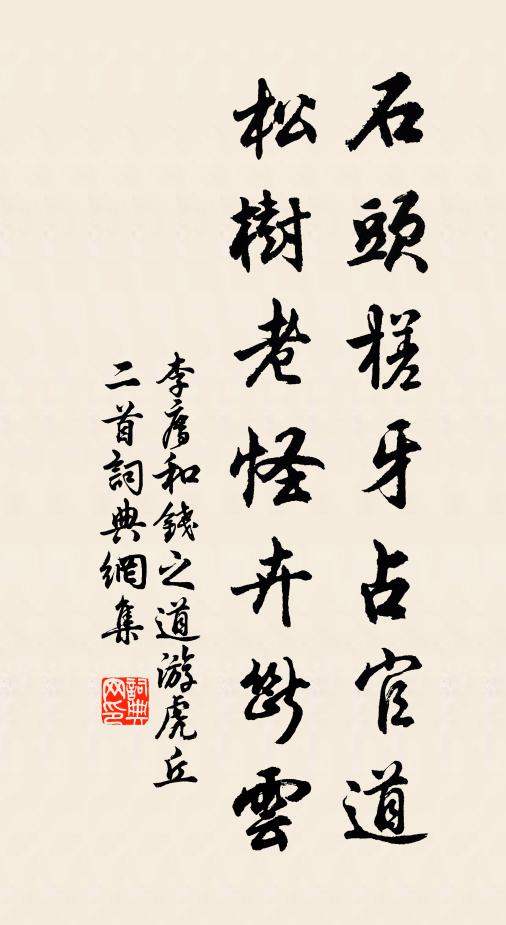 石頭槎牙占官道
松樹老怪卉斷雲
李廌和錢之道游虎丘
二首詞典網集
詞典网印